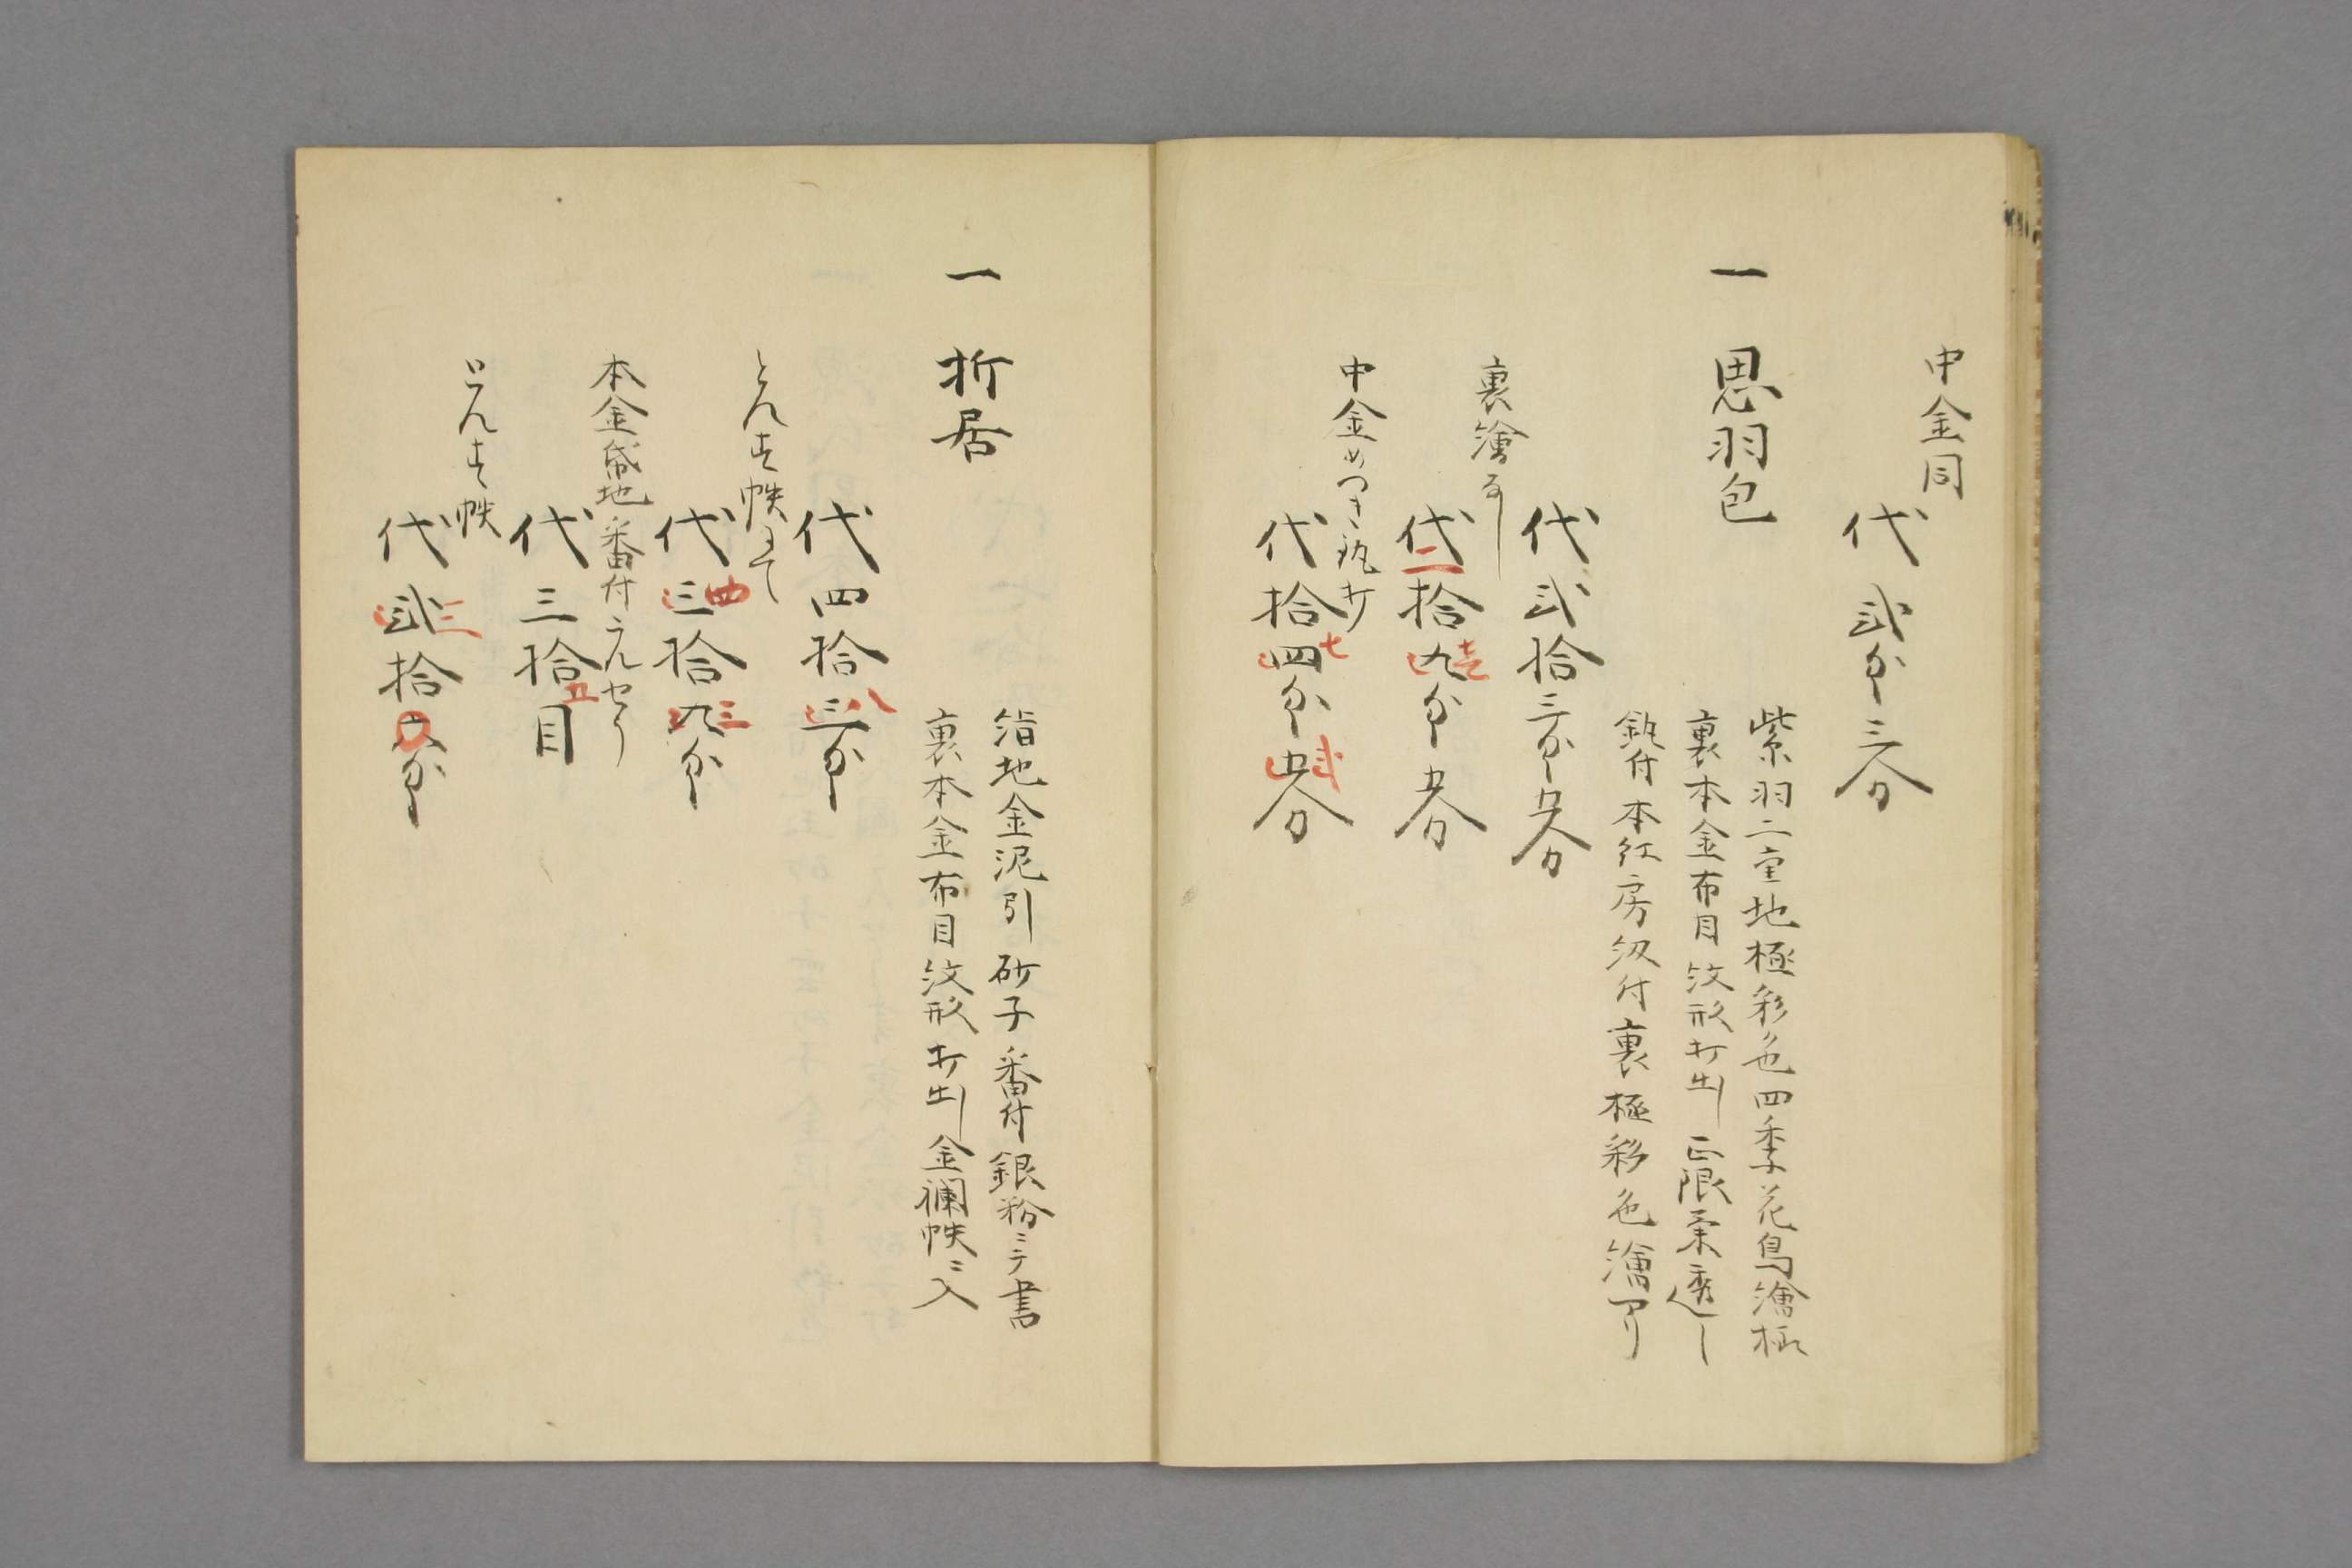 中金同
代 弐匁三分
一 思羽包
紫羽二重地極彩色四季花鳥繪極
裏本金布目紋形打出し
付本紅房 付裏極彩色繪アリ
代 弐拾三匁五分
裏繪なし
代二拾九匁五分
壱
中金めつき 打
代拾四匁五分
七 弐
一 折居
地金泥引砂子番付銀粉ニテ書
裏本金布目紋形打出し金襴帙ニ入
代四拾三匁
八
とんす帙ニて
代三拾九匁
四 三
本金 地番付 
代三拾五目
とんす帙
代弐拾 匁
三